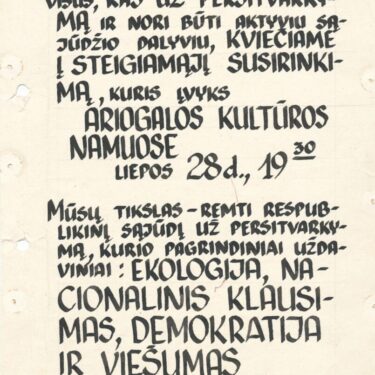 VISUS, KAS UŽ PERSITVARKY-
MĄ IR NORI BŪTI AKTYVIU SĄ-
JŪDŽIO DALYVIU, KVIEČIAME
Į STEIGIAMĄJĮ SUSIRINKI-
MĄ, KURIS ĮVYKS
ARIOGALOS KULTŪROS
NAMUOSE
LIEPOS 28 d., 19 30
MŪSŲ TIKSLAS – REMTI RESPUB-
LIKINĮ SĄJŪDĮ UŽ PERSITVARKY-
MĄ, KURIO PAGRINDINIAI UŽDA-
VINIAI : EKOLOGIJA, NA-
CIONALINIS KLAUSI-
MAS, DEMOKRATIJA
IR VIEŠUMAS